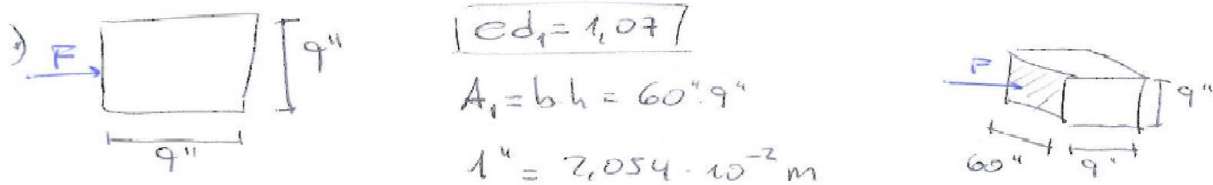 1) F 9" 9"
cd₁ = 1,07
A₁ = b·h = 60"·9"
1" = 2,054 · 10⁻² m
F 9" 60" 9"